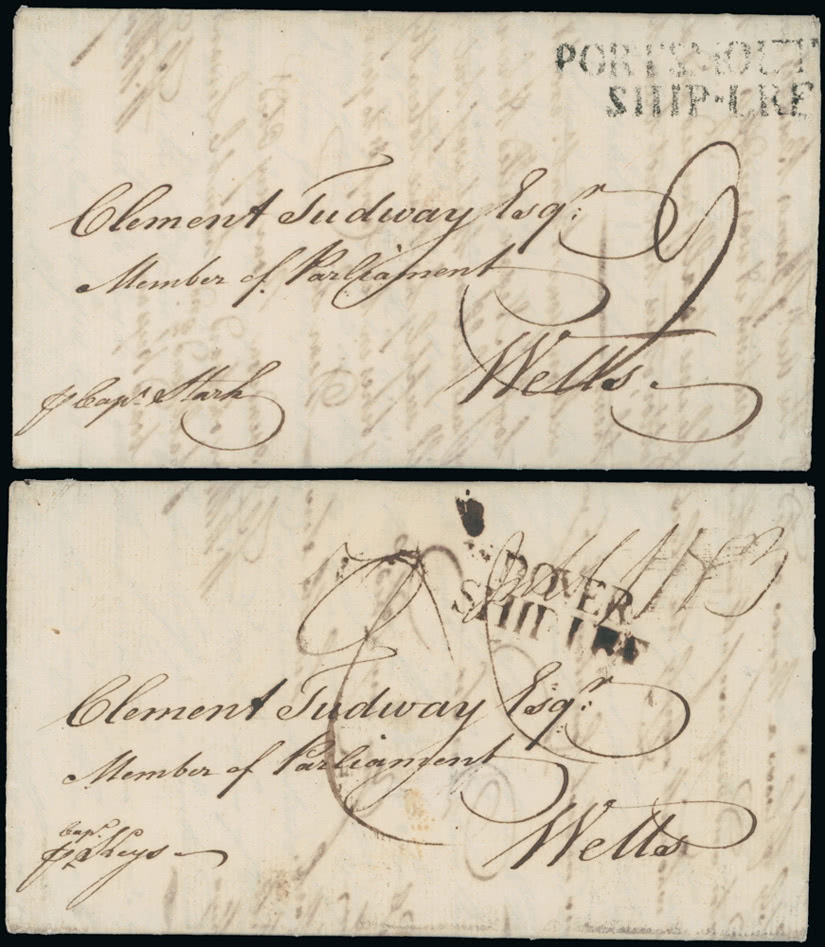 PORTSMOUT
SHIP-LRE
Clement Tudway Esqr.
Member of Parliament
Wells.
p Capt. Stark
DOVER
SHIP LRE
Clement Tudway Esqr.
Member of Parliament
Wells
Capt.
p Skeys